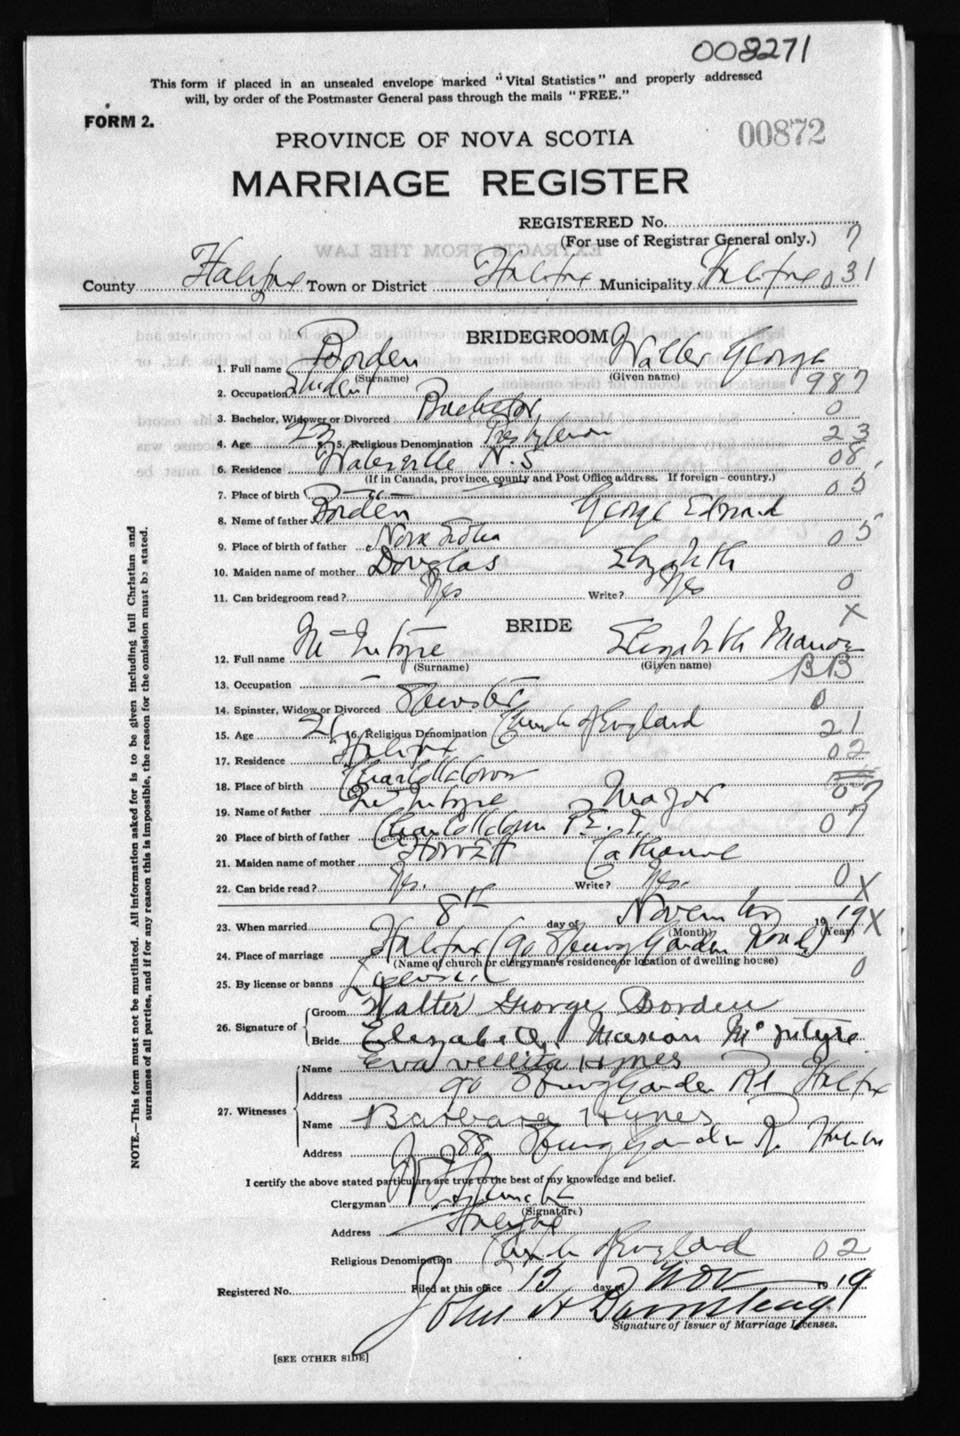 008271
This form if placed in an unsealed envelope marked "Vital Statistics" and properly addressed
will, by order of the Postmaster General pass through the mails "FREE."
FORM 2.
00872
PROVINCE OF NOVA SCOTIA
MARRIAGE REGISTER
REGISTERED No.
(For use of Registrar General only.) 7
County Halifax Town or District Halifax Municipality Halifax 031
BRIDEGROOM
1. Full name Borden Walter George
(Surname) (Given name)
2. Occupation Student 987
3. Bachelor, Widower or Divorced Bachelor 0
4. Age 23 5. Religious Denomination Presbyterian 23
6. Residence Waterville N.S 08
(If in Canada, province, county and Post Office address. If foreign - country.)
7. Place of birth 05
8. Name of father Borden George Edward
9. Place of birth of father Nova Scotia 05
10. Maiden name of mother Douglas Elizabeth
11. Can bridegroom read? Yes Write? Yes 0
X
BRIDE
12. Full name McIntyre Elizabeth Marion
(Surname) (Given name)
13. Occupation BB
14. Spinster, Widow or Divorced Spinster 0
15. Age 21 16. Religious Denomination Church of England 21
17. Residence Halifax 02
18. Place of birth Charlottetown 07
19. Name of father McIntyre Major
20 Place of birth of father Charlottetown P.E.I. 07
21. Maiden name of mother Catherine
22. Can bride read? Yes. Write? Yes. 0 X
23. When married 8th day of November 1919 X
(Month) (Year)
24. Place of marriage Halifax (90 Spring Garden Road)
(Name of church or clergyman's residence or location of dwelling house)
25. By license or banns License 0
26. Signature of Groom Walter George Borden
Bride Elizabeth Marion McIntyre
27. Witnesses Name Eva Hymes
Address 90 Spring Garden Rd Halifax
Name Barbara Hymes
Address 88 Spring Garden R. Halifax
I certify the above stated particulars are true to the best of my knowledge and belief.
Clergyman
(Signature)
Address Halifax
Religious Denomination Church of England 02
Registered No. Filed at this office 12 day of Nov 1919
John A
Signature of Issuer of Marriage Licenses.
[SEE OTHER SIDE]
NOTE.—This form must not be mutilated. All information asked for is to be given including full Christian and
surnames of all parties, and if for any reason this is impossible, the reason for the omission must be stated.
EXTRACTS FROM THE LAW